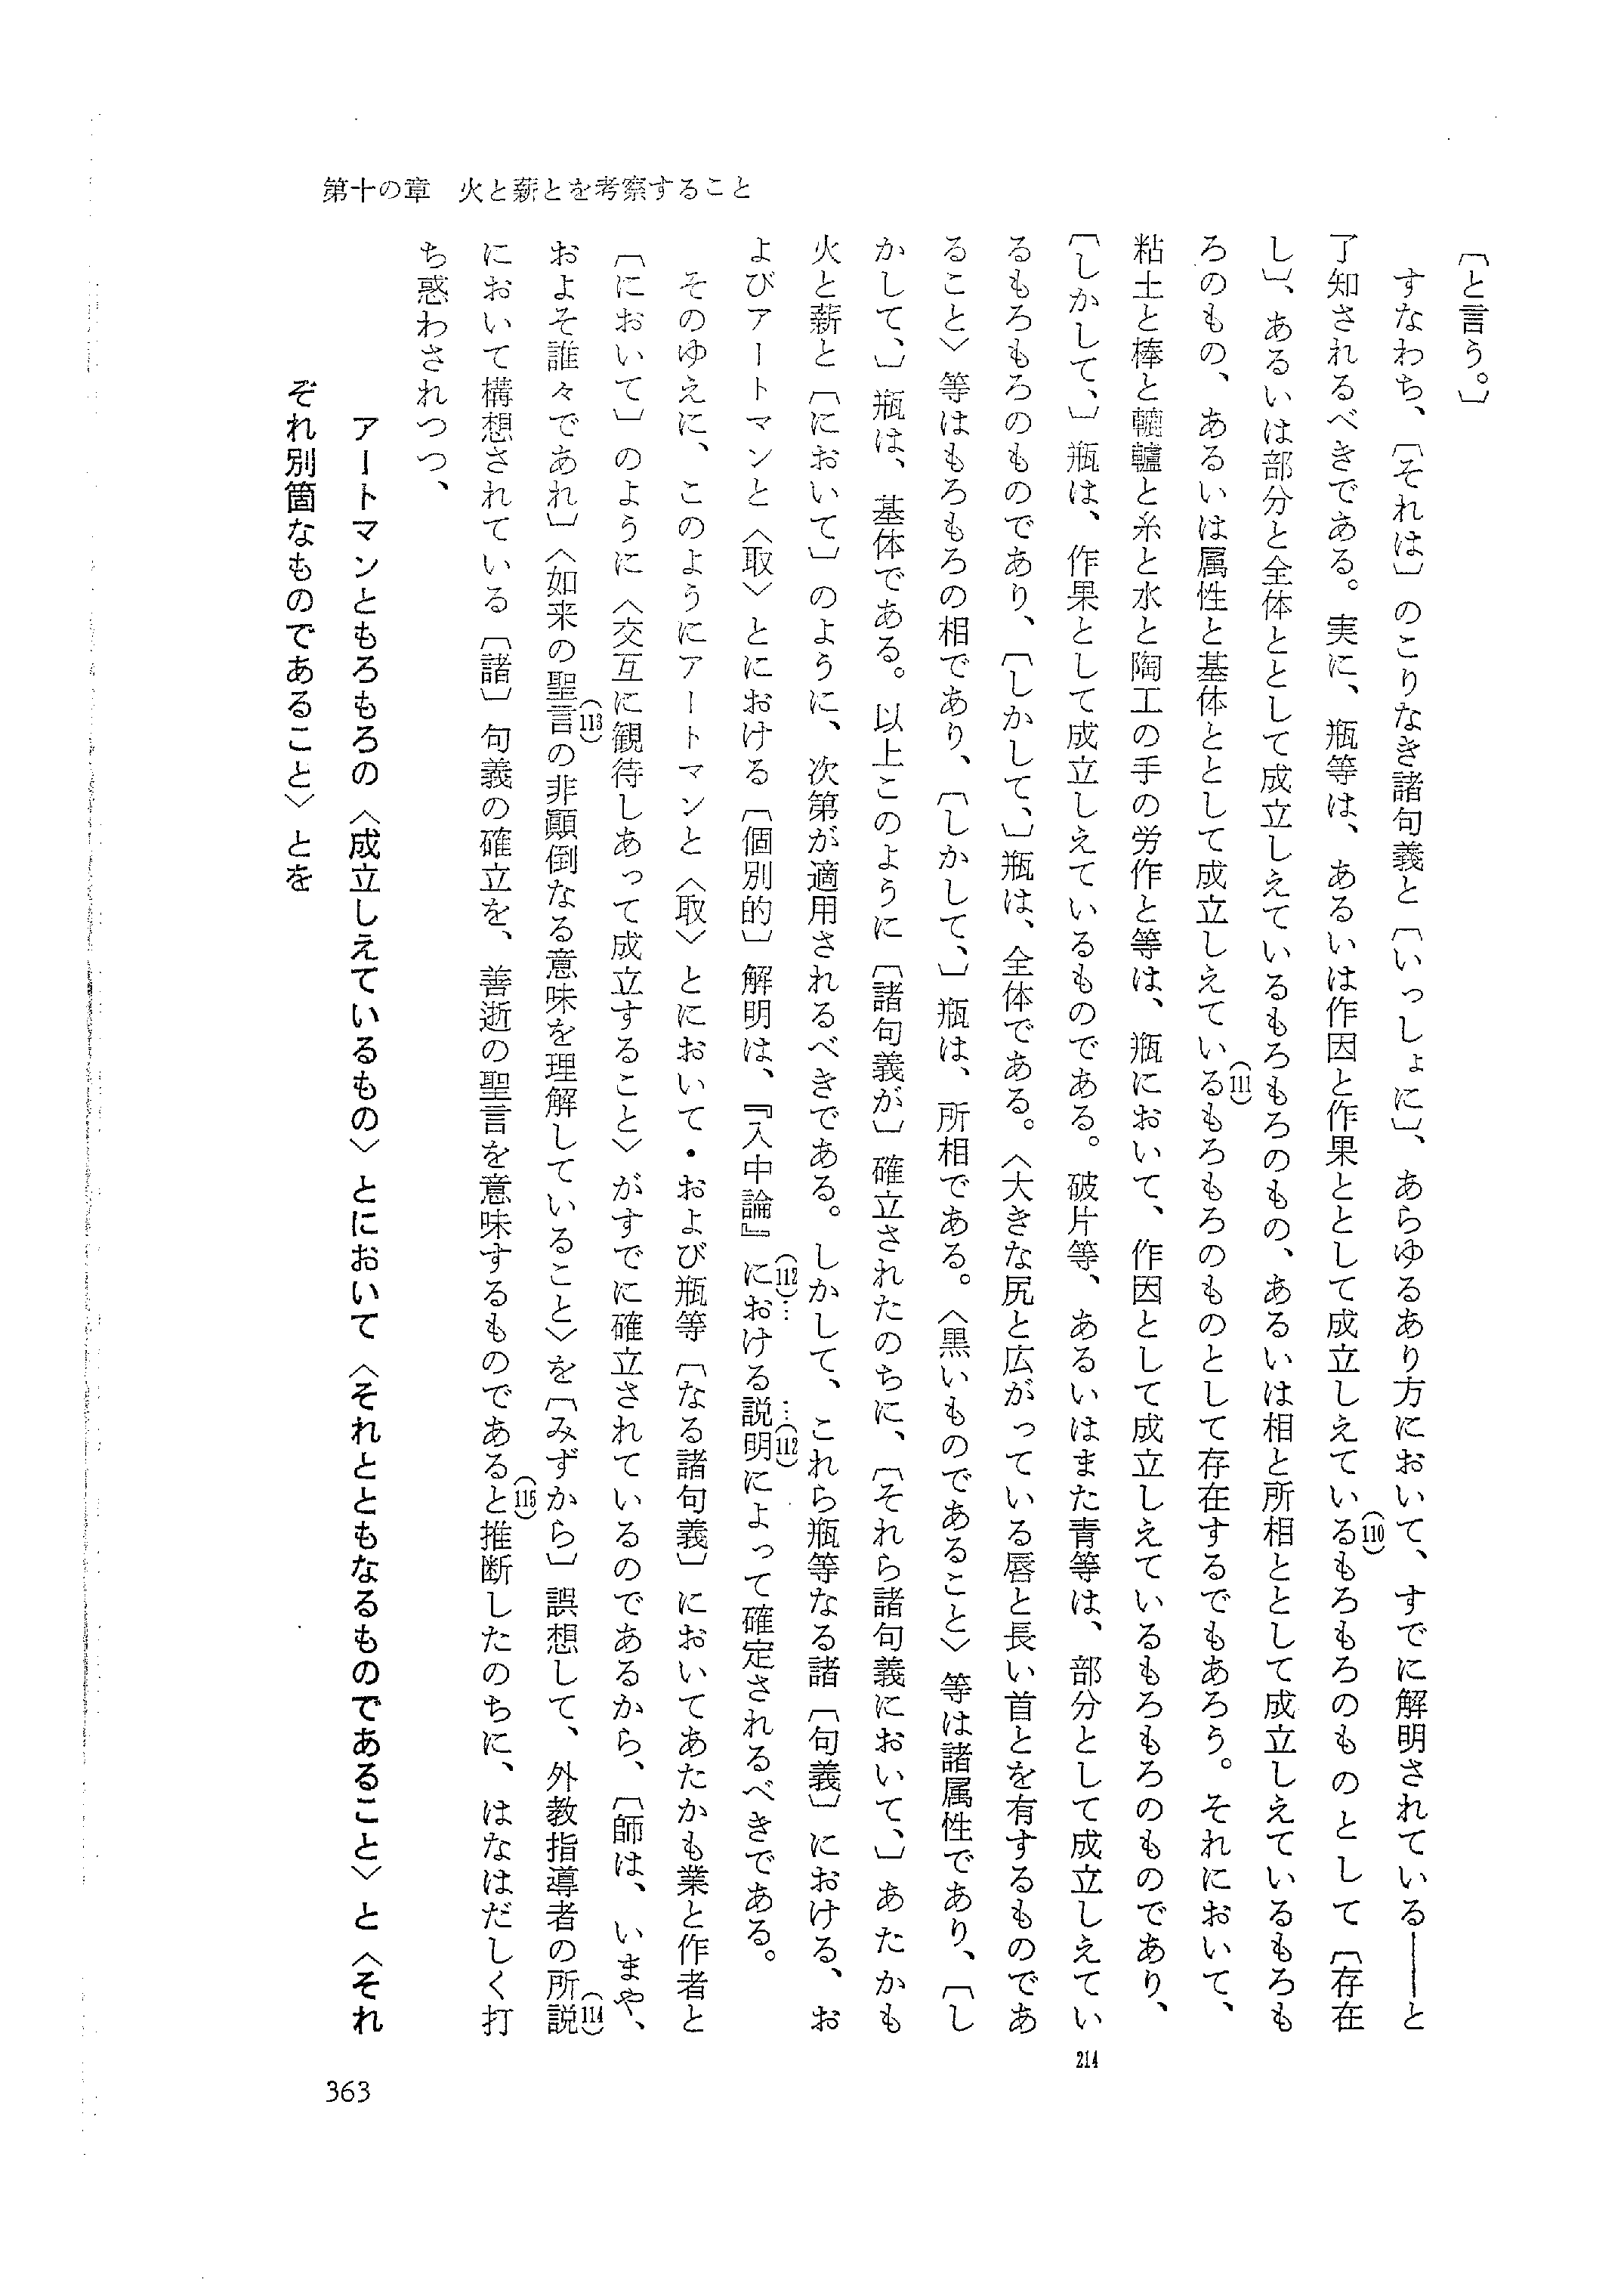 第十の章　火と薪とを考察すること
〔と言う。〕
すなわち、〔それは〕のこりなき諸句義と〔いっしょに〕、あらゆるあり方において、すでに解明されている――と
了知されるべきである。実に、瓶等は、あるいは作因と作果ととして成立しえている(110)もろもろのものとして〔存在
し〕、あるいは部分と全体ととして成立しえているもろもろのもの、あるいは相と所相ととして成立しえているもろも
ろのもの、あるいは属性と基体ととして成立しえている(111)もろもろのものとして存在するでもあろう。それにおいて、
粘土と棒と轆轤と糸と水と陶工の手の労作と等は、瓶において、作因として成立しえているもろもろのものであり、
〔しかして、〕瓶は、作果として成立しえているものである。破片等、あるいはまた青等は、部分として成立しえてい
214
るもろもろのものであり、〔しかして、〕瓶は、全体である。〈大きな尻と広がっている唇と長い首とを有するものであ
ること〉等はもろもろの相であり、〔しかして、〕瓶は、所相である。〈黒いものであること〉等は諸属性であり、〔し
かして、〕瓶は、基体である。以上このように〔諸句義が〕確立されたのちに、〔それら諸句義において、〕あたかも
火と薪と〔において〕のように、次第が適用されるべきである。しかして、これら瓶等なる諸〔句義〕における、お
よびアートマンと〈取〉とにおける〔個別的〕解明は、『入中論』(112)…における説明…(112)によって確定されるべきである。
そのゆえに、このようにアートマンと〈取〉とにおいて・および瓶等〔なる諸句義〕においてあたかも業と作者と
〔において〕のように〈交互に観待しあって成立すること〉がすでに確立されているのであるから、〔師は、いまや、
およそ誰々であれ〕〈如来の聖言(113)の非顚倒なる意味を理解していること〉を〔みずから〕誤想して、外教指導者の所説(114)
において構想されている〔諸〕句義の確立を、善逝の聖言を意味するものである(115)と推断したのちに、はなはだしく打
ち惑わされつつ、
アートマンともろもろの〈成立しえているもの〉とにおいて〈それとともなるものであること〉と〈それ
ぞれ別箇なものであること〉とを
363